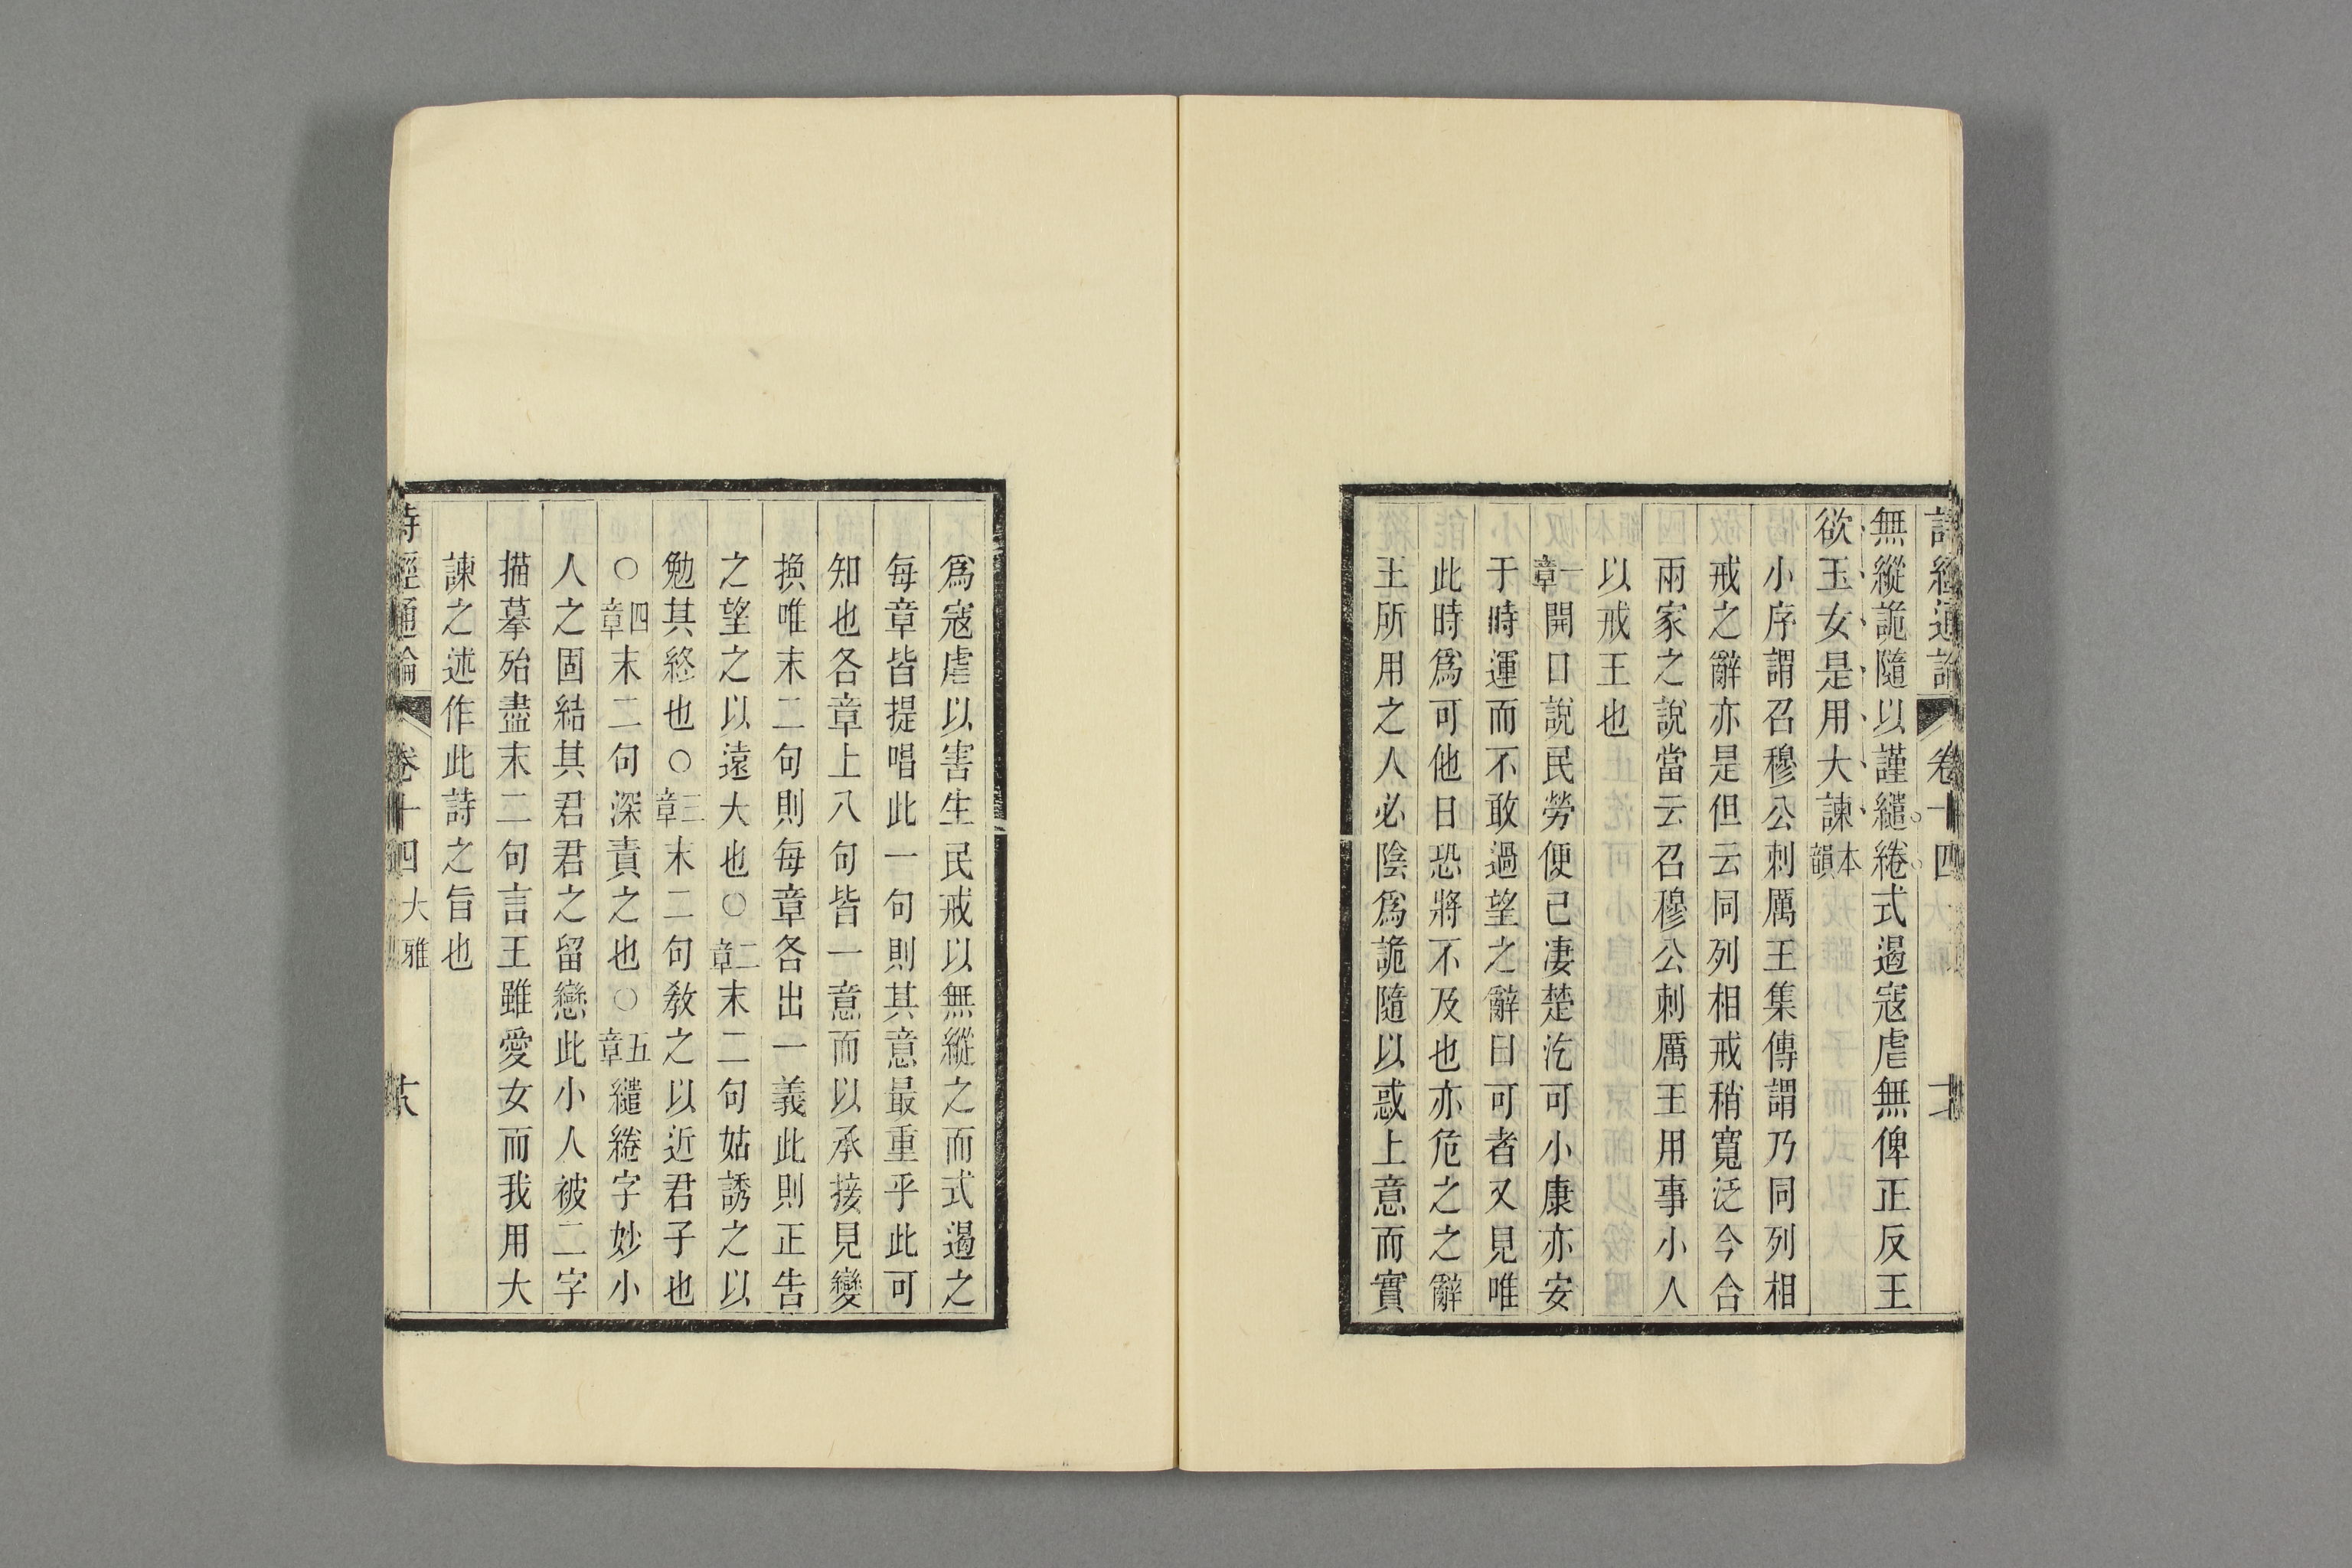 詩經通論 卷十四
無縱詭隨以謹繾綣式遏寇虐無俾正反王
欲玉女是用大諫本韻
小序謂召穆公刺厲王集傳謂乃同列相
戒之辭亦是但云同列相戒稍寬泛今合
兩家之說當云召穆公刺厲王用事小人
以戒王也
一章開口說民勞便已凄楚汔可小康亦安
于時運而不敢過望之辭曰可者又見唯
此時爲可他日恐將不及也亦危之之辭
王所用之人必陰爲詭隨以惑上意而實
爲寇虐以害生民戒以無縱之而式遏之
每章皆提唱此一句則其意最重乎此可
知也各章上八句皆一意而以承接見變
換唯末二句則每章各出一義此則正告
之望之以遠大也○二章末二句姑誘之以
勉其終也○三章末二句敎之以近君子也
○四章末二句深責之也○五章繾綣字妙小
人之固結其君君之留戀此小人被二字
描摹殆盡末二句言王雖愛女而我用大
諫之述作此詩之旨也
詩經通論 卷十四 大雅